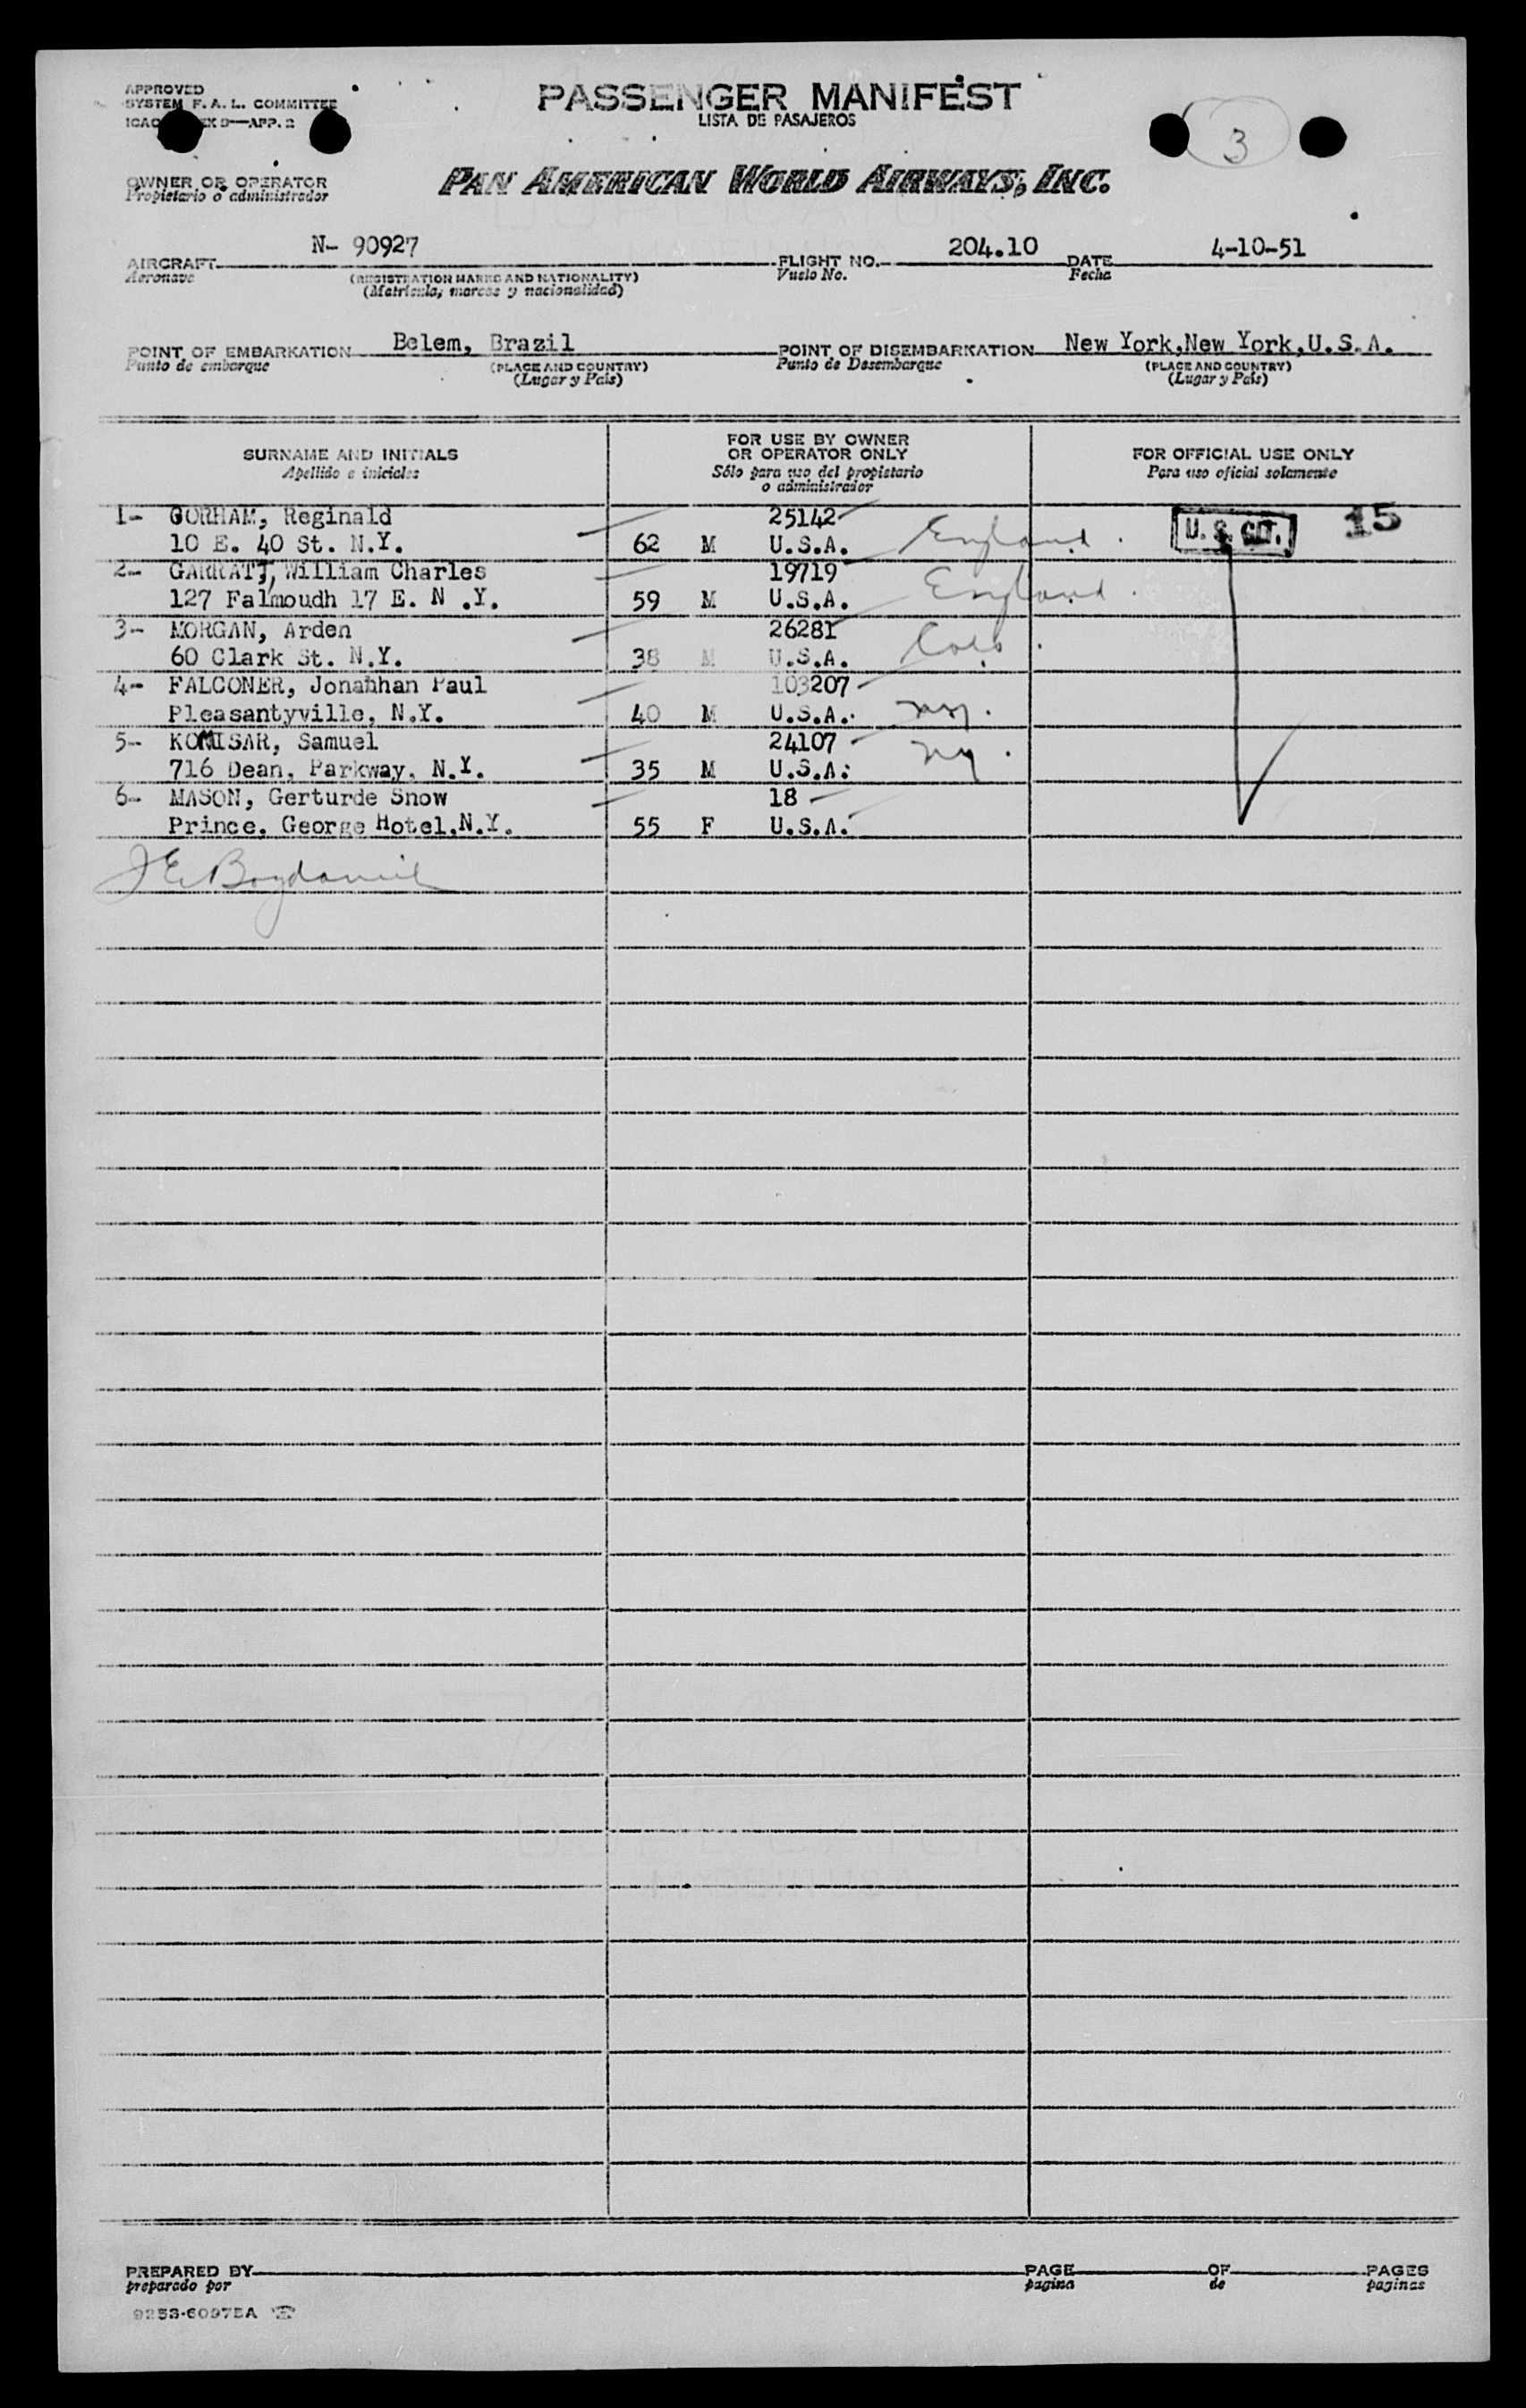 APPROVED
SYSTEM F. A. L. COMMITTEE
APP. 2
PASSENGER MANIFEST
LISTA DE PASAJEROS
3
OWNER OR OPERATOR
Propietario o administrador
PAN AMERICAN WORLD AIRWAYS, INC.
AIRCRAFT N- 90927 FLIGHT NO. 204.10 DATE 4-10-51
Aeronave (REGISTRATION MARKS AND NATIONALITY) Vuelo No. Fecha
(Matricula, marcas y nacionalidad)
POINT OF EMBARKATION Belem, Brazil POINT OF DISEMBARKATION New York,New York,U.S.A.
Punto de embarque (PLACE AND COUNTRY) Punto de Desembarque (PLACE AND COUNTRY)
(Lugar y Pais) (Lugar y Pais)
SURNAME AND INITIALS
Apellido e iniciales
FOR USE BY OWNER
OR OPERATOR ONLY
Sólo para uso del propietario
o administrador
FOR OFFICIAL USE ONLY
Para uso oficial solamente
1- GORHAM, Reginald 25142 U. S. CIT. 15
10 E. 40 St. N.Y. 62 M U.S.A. England.
2- GARRATT, William Charles 19719
127 Falmoudh 17 E. N .Y. 59 M U.S.A. England.
3- MORGAN, Arden 26281
60 Clark St. N.Y. 38 M U.S.A. Colo.
4- FALCONER, Jonahhan Paul 103207
Pleasantyville, N.Y. 40 M U.S.A.
5- KOMISAR, Samuel 24107
716 Dean, Parkway, N.Y. 35 M U.S.A. ny.
6- MASON, Gerturde Snow 18
Prince. George Hotel,N.Y. 55 F U.S.A.
PREPARED BY PAGE OF PAGES
preparado por pagina de paginas